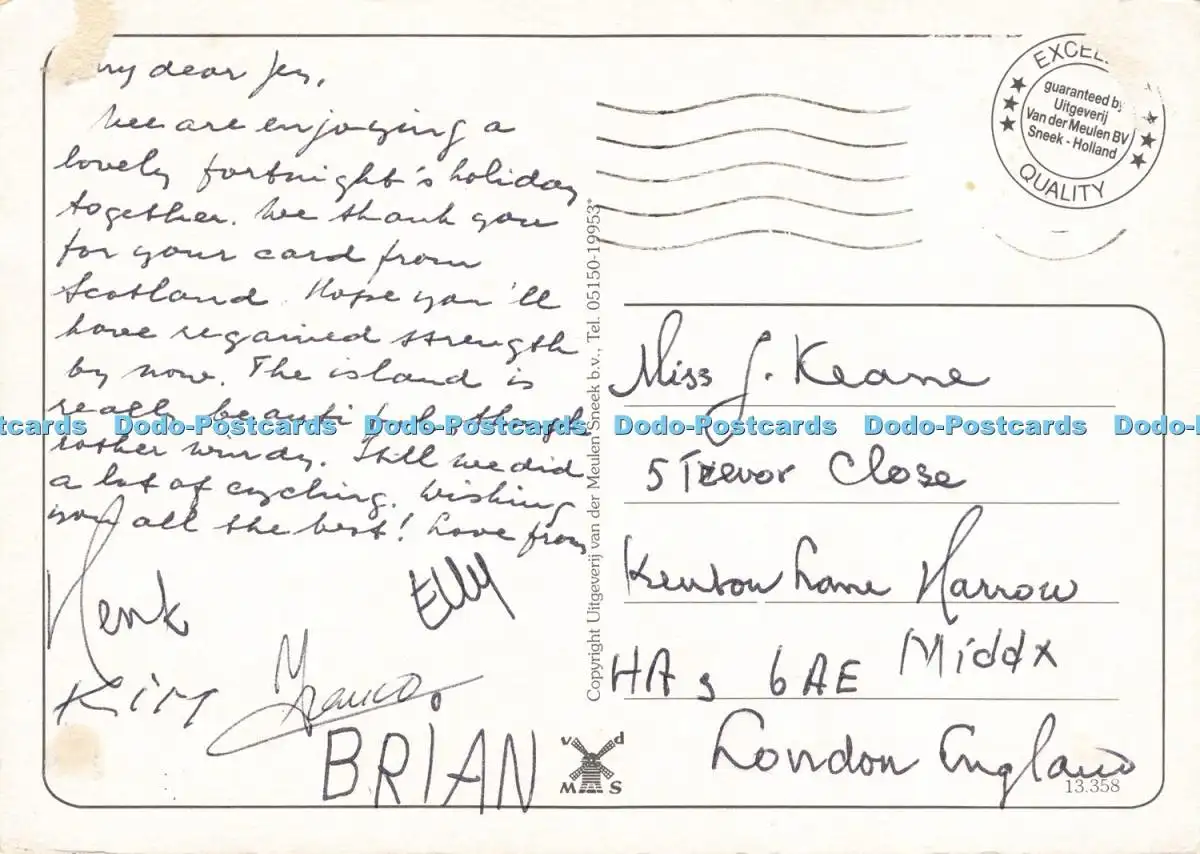 my dear Jey,
We are enjoying a
lovely fortnight's holiday
together. We thank you
for your card from
Scotland. Hope you'll
have regained strength
by now. The island is
really beautiful though
rather windy. Still we did
a lot of cycling. Wishing
you all the best! Love from
Henk
Elly
Kim
BRIAN
Copyright Uitgeverij van der Meulen Sneek b.v., Tel. 05150-19953*
v d
M S
EXCEL
guaranteed by
Uitgeverij
Van der Meulen BV
Sneek - Holland
QUALITY
Miss J. Keane
5 Trevor Close
Kenton Lane Harrow
HA3 6AE Middx
London England
13.358
tcards Dodo-Postcards Dodo-Postcards Dodo-Postcards Dodo-Postcards Dodo-